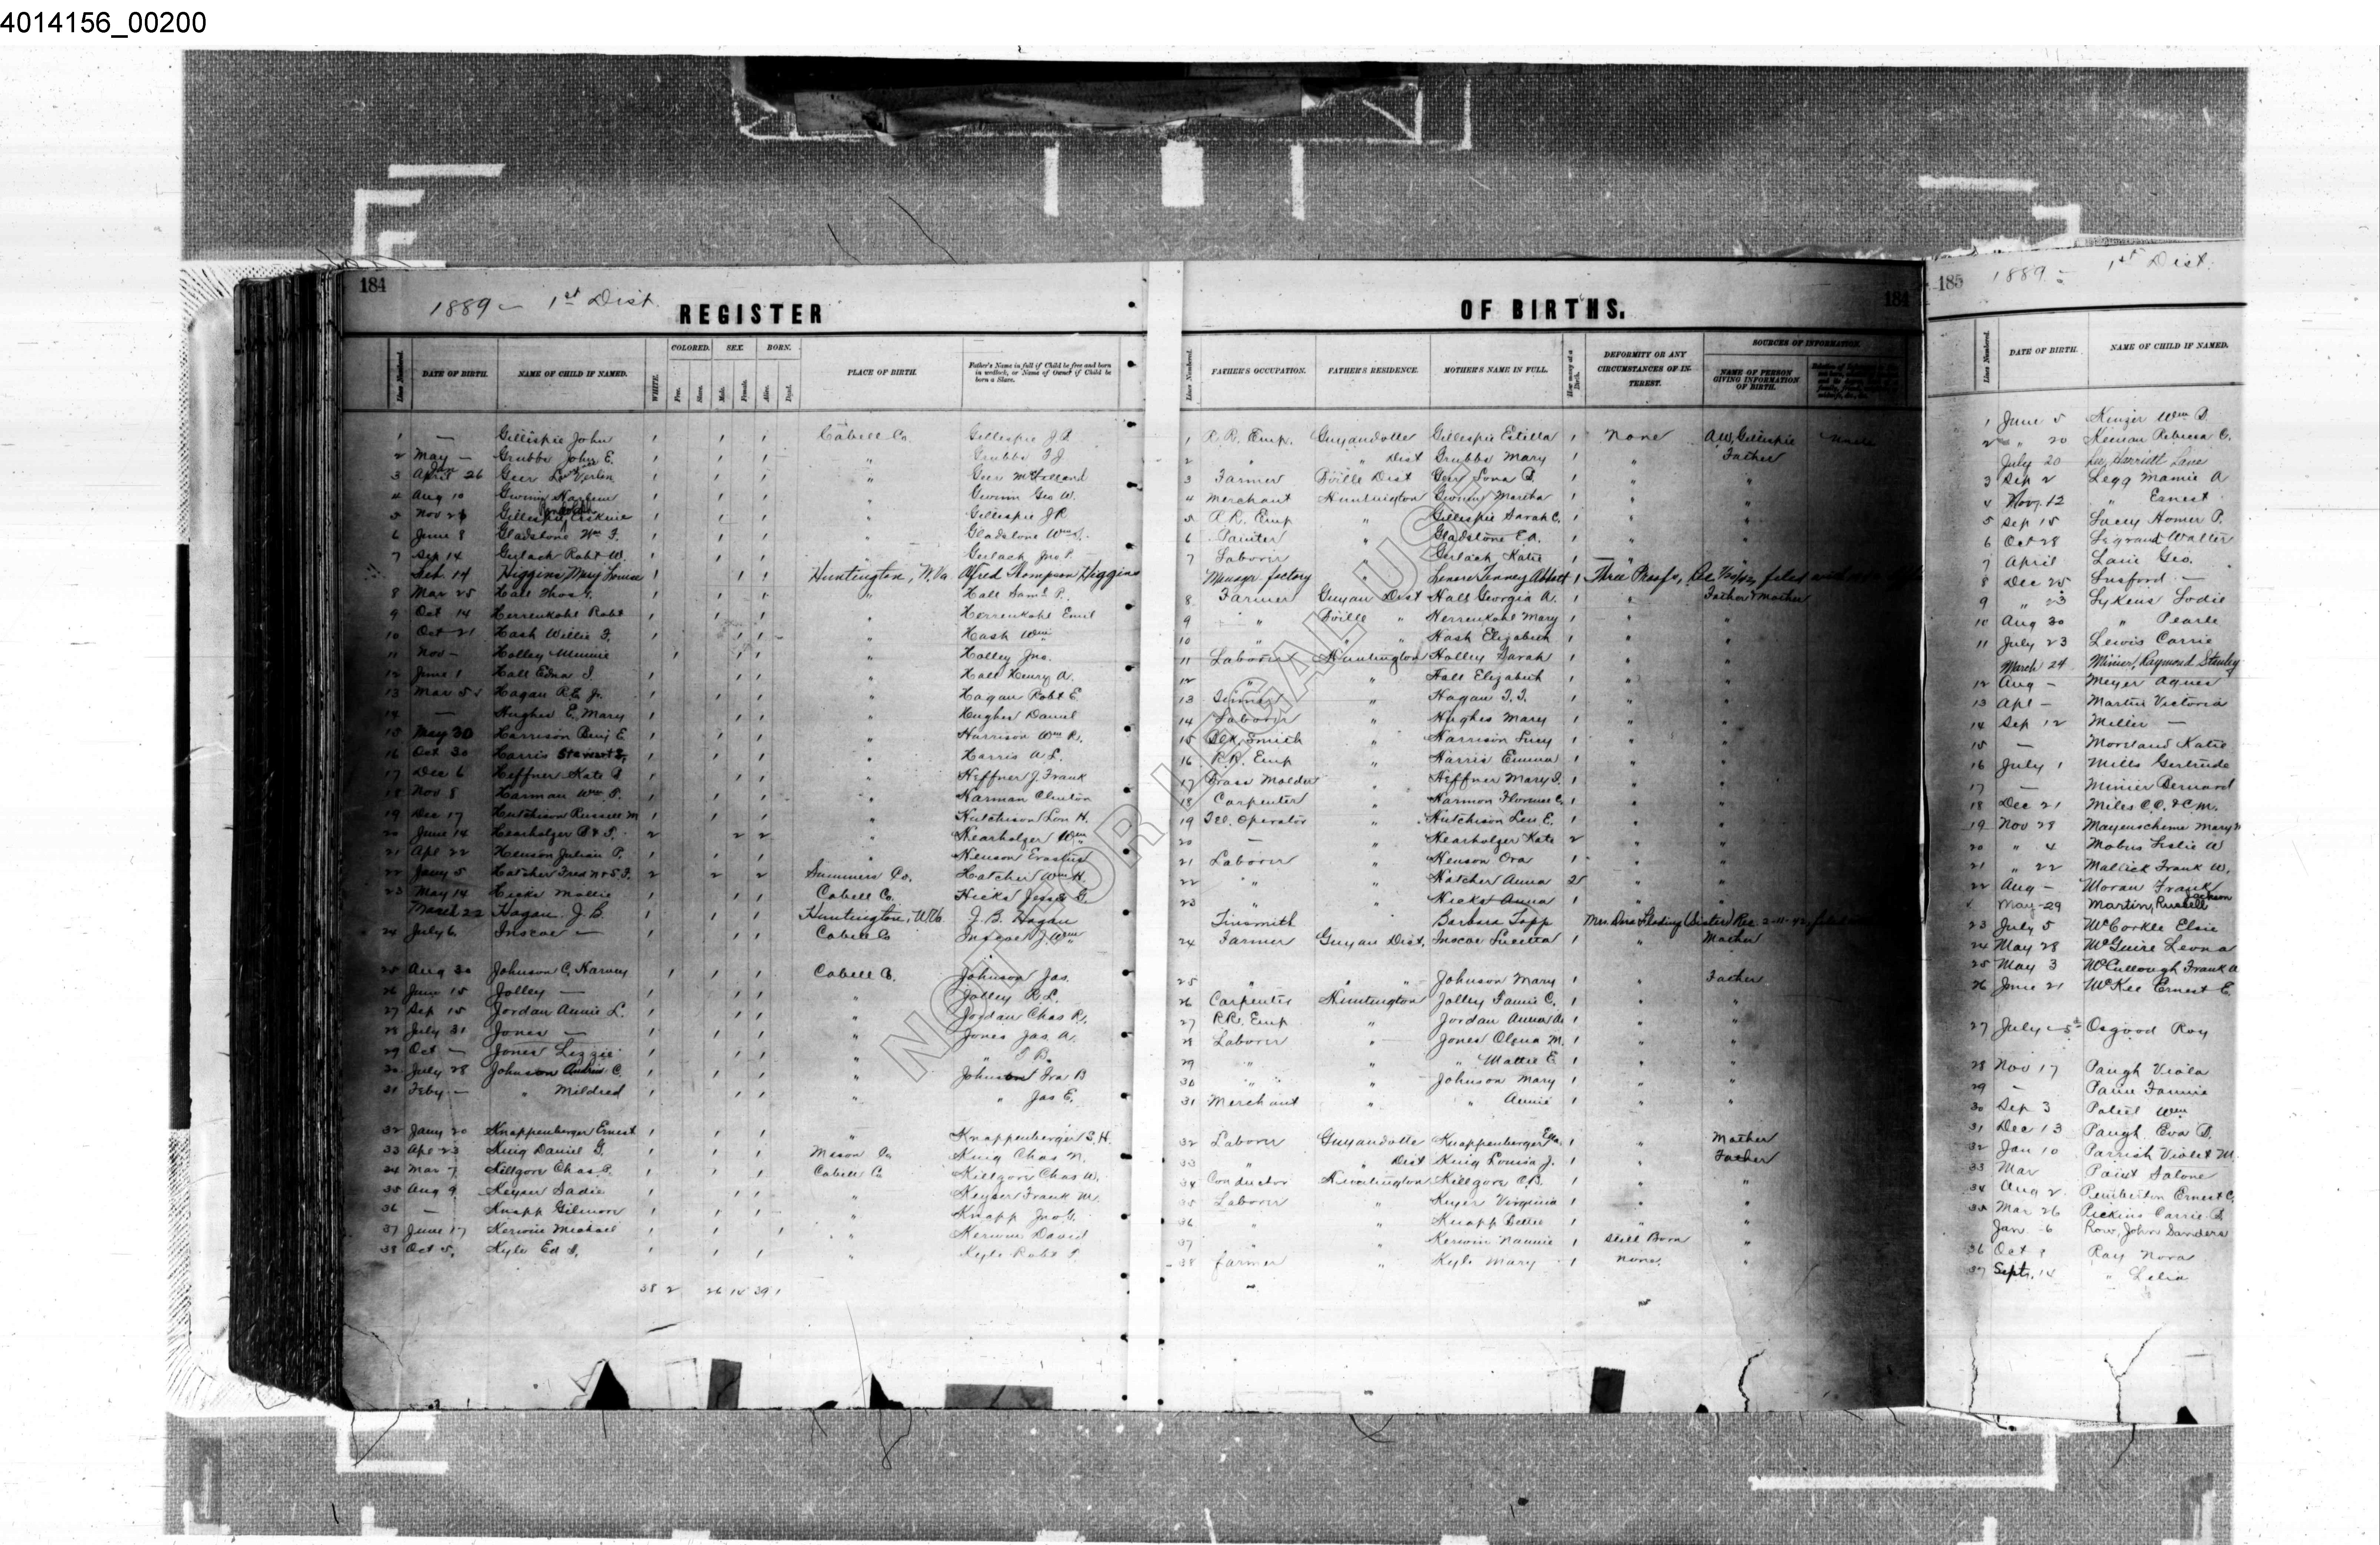 4014156_00200
184
1889 - 1st Dist.
REGISTER
Lines Numbered. DATE OF BIRTH. NAME OF CHILD IF NAMED. WHITE. COLORED. Free. Slave. SEX. Male. Female. BORN. Alive. Dead. PLACE OF BIRTH. Father's Name in full if Child be free and born in wedlock, or Name of Owner if Child be born a Slave.
1 — Gillispie John 1 1 1 Cabell Co. Gillespie J R
2 May — Grubbs John E. 1 1 1 " Grubbs T J
3 26 Geer Verlen 1 1 1 " Geer Holland
4 Aug 10 Gwinn 1 1 1 " Gwinn Geo W.
5 Nov Gillespie Erskine 1 1 1 " Gillespie J R
6 June 8 Gladstone Wm T. 1 1 1 " Gladstone Wm
7 Sep 14 Gerlach Robt W. 1 1 1 " Gerlach Jno P.
Feb 14 Higgins, Mary Louise 1 1 1 Huntington, W.Va Alfred Thompson Higgins
8 Mar 25 Hall Thos G. 1 1 1 " Hall Saml P.
9 Oct 14 Herrenkohl Robt 1 1 1 " Herrenkohl Emil
10 Oct 21 Hash Willie F. 1 1 1 " Hash Wm
11 Nov — Holley Minnie 1 1 1 " Holley Jno.
12 June 1 Hall Edna I. 1 1 1 " Hall Henry A.
13 Mar 5 Hagan R.E. Jr. 1 1 1 " Hagan Robt E
14 — Hughes E. Mary 1 1 1 " Hughes Daniel
15 May 30 Harrison Benj E. 1 1 1 " Harrison Wm R.
16 Oct 30 Harris Stewart S. 1 1 1 " Harris A L.
17 Dec 6 Heffner Kate 1 1 1 " Heffner J. Frank
18 Nov 8 Harman Wm P. 1 1 1 " Harman Clinton
19 Dec 17 Hutchison Russell M 1 1 1 " Hutchison Lon H.
20 June 14 Hearholzer 2 2 2 " Hearholzer Wm
21 Apl 22 Henson Julian P. 1 1 1 " Henson Erastus
22 Jany 5 Hatcher Fred 2 2 2 Summers Co. Hatcher Wm H.
23 May 14 Hicks Mollie 1 1 1 Cabell Co. Hicks Jesse G.
March 22 Hagan J. B. 1 1 1 Huntington, W.Va. J. B. Hagan
24 July 6 Inscoe — 1 1 1 Cabell Co Inscoe J. Wm
25 Aug 30 Johnson C. Harvey 1 1 1 Cabell C. Johnson Jas.
26 June 15 Jolley — 1 1 1 " Jolley R. L.
27 Sep 15 Jordan Annie L. 1 1 1 " Jordan Chas R.
28 July 31 Jones — 1 1 1 " Jones Jas. A.
29 Oct — Jones Lizzie 1 1 1 " "
30 July 28 Johnson C. 1 1 1 " Johnson Ira B
31 Feby — " Mildred 1 1 1 " " Jas E.
32 Jany 20 Knappenberger Ernest 1 1 1 " Knappenberger S. H.
33 Apl 23 King Daniel G. 1 1 1 Mason Co King Chas N.
34 Mar 7 Killgore Chas 1 1 1 Cabell C Killgore Chas W.
35 Aug 9 Keyser Sadie 1 1 1 " Keyser Frank M.
36 — Knapp Gilmore 1 1 1 " Knapp Jno
37 June 17 Kerwin Michael 1 1 1 " Kerwin David
38 Oct 5. Kyle Ed 1 1 1 " Kyle Robt
38 2 26 14 39 1
OF BIRTHS.
184
Lines Numbered. FATHER'S OCCUPATION. FATHER'S RESIDENCE. MOTHER'S NAME IN FULL. How many at a Birth. DEFORMITY OR ANY CIRCUMSTANCES OF INTEREST. SOURCES OF INFORMATION. NAME OF PERSON GIVING INFORMATION OF BIRTH.
1 R. R. Emp. Guyandotte Gillespie Estilla 1 None A.W. Gillespie Uncle
2 " " Dist Grubbs Mary 1 " Father
3 Farmer B'ville Dist Geer 1 " "
4 Merchant Huntington Gwinn Martha 1 " "
5 R. R. Emp " Gillespie Sarah C. 1 " "
6 Painter " Gladstone E.A. 1 " "
7 Laborer " Gerlach Katie 1 " "
factory " Lenore Tenney Abbott 1 Three Proofs, Rec filed with
8 Farmer Guyan Dist Hall Georgia A. 1 " Father & Mother
9 " B'ville " Herrenkohl Mary 1 " "
10 " " " Hash Elizabeth 1 " "
11 Laborer Huntington Holley Sarah 1 " "
12 " " Hall Elizabeth 1 " "
13 Tinner " Hagan 1 " "
14 Laborer " Hughes Mary 1 " "
15 Blk. Smith " Harrison Lucy 1 " "
16 R.R. Emp " Harris Emma 1 " "
17 Brass Molder " Heffner Mary 1 " "
18 Carpenter " Harmon Florence C. 1 " "
19 Tel. Operator " Hutchison Lou E. 1 " "
20 — " Hearholzer Kate 2 " "
21 Laborer " Henson Ora 1 " "
22 " " Hatcher Anna 2 " "
23 " " Hicks Anna 1 " "
Tinsmith Barbara Topp Mrs. Dora (Sister) Rec. 2-11-42, filed
24 Farmer Guyan Dist. Inscoe Luretta 1 " Mother
25 " " " Johnson Mary 1 " Father
26 Carpenter Huntington Jolley Fannie C. 1 " "
27 R.R. Emp " Jordan Anna 1 " "
28 Laborer " Jones Olena M. 1 " "
29 " " " Mattie E 1 " "
30 " " " Johnson Mary 1 " "
31 Merchant " " Annie 1 " "
32 Laborer Guyandotte Knappenberger Ella. 1 " Mother
33 " " Dist King Louisa J. 1 " Father
34 Conductor Huntington Killgore 1 " "
35 Laborer " Keyser Virginia 1 " "
36 " " Knapp Bettie 1 " "
37 " " Kerwin Nannie 1 Still Born "
38 Farmer " Kyle Mary 1 None. "
NOT FOR LEGAL USE
185
1889 - 1st Dist.
Lines Numbered. DATE OF BIRTH. NAME OF CHILD IF NAMED.
1 June 5 Kinzer Wm
2 " 20 Keenan Rebecca C.
July 20 Lee, Harriett Lane
3 Sep 2 Legg Mamie A
4 Nov. 12 " Earnest
5 Sep 15 Lacey Homer P.
6 Oct 28 Legrand Walter
7 April Lane Geo.
8 Dec 25 Lusford —
9 " 23 Lykens Sodie
10 Aug 30 " Pearle
11 July 23 Lewis Carrie
March 24 Minier, Raymond Stanley
12 Aug — Meyer Agnes
13 Apl — Martin Victoria
14 Sep 12 Miller —
15 — Moreland Katie
16 July 1 Mills Gertrude
17 — Minier Bernard
18 Dec 21 Miles C.C. & C.M.
19 Nov 28 Mayenscheme Mary
20 " 4 Mobus Leslie W
21 " 22 Mallick Frank W.
22 Aug — Moran Frank
May 29 Martin, Russell Jackson
23 July 5 McCorkle Elsie
24 May 28 McGuire Leona
25 May 3 McCullough Frank A
26 June 21 McKee Ernest E.
27 July 5 Osgood Roy
28 Nov 17 Paugh Viola
29 — Paine Fannie
30 Sep 3 Poteet Wm
31 Dec 13 Paugh Eva
32 Jan 10 Parrish Violet M.
33 Mar Paint Salone
34 Aug 2 Pemberton Ernest C.
35 Mar 26 Pickins Carrie
Jan 6 Row, John Sanders
36 Oct Ray Nora
37 Sept. 14 " Lelia